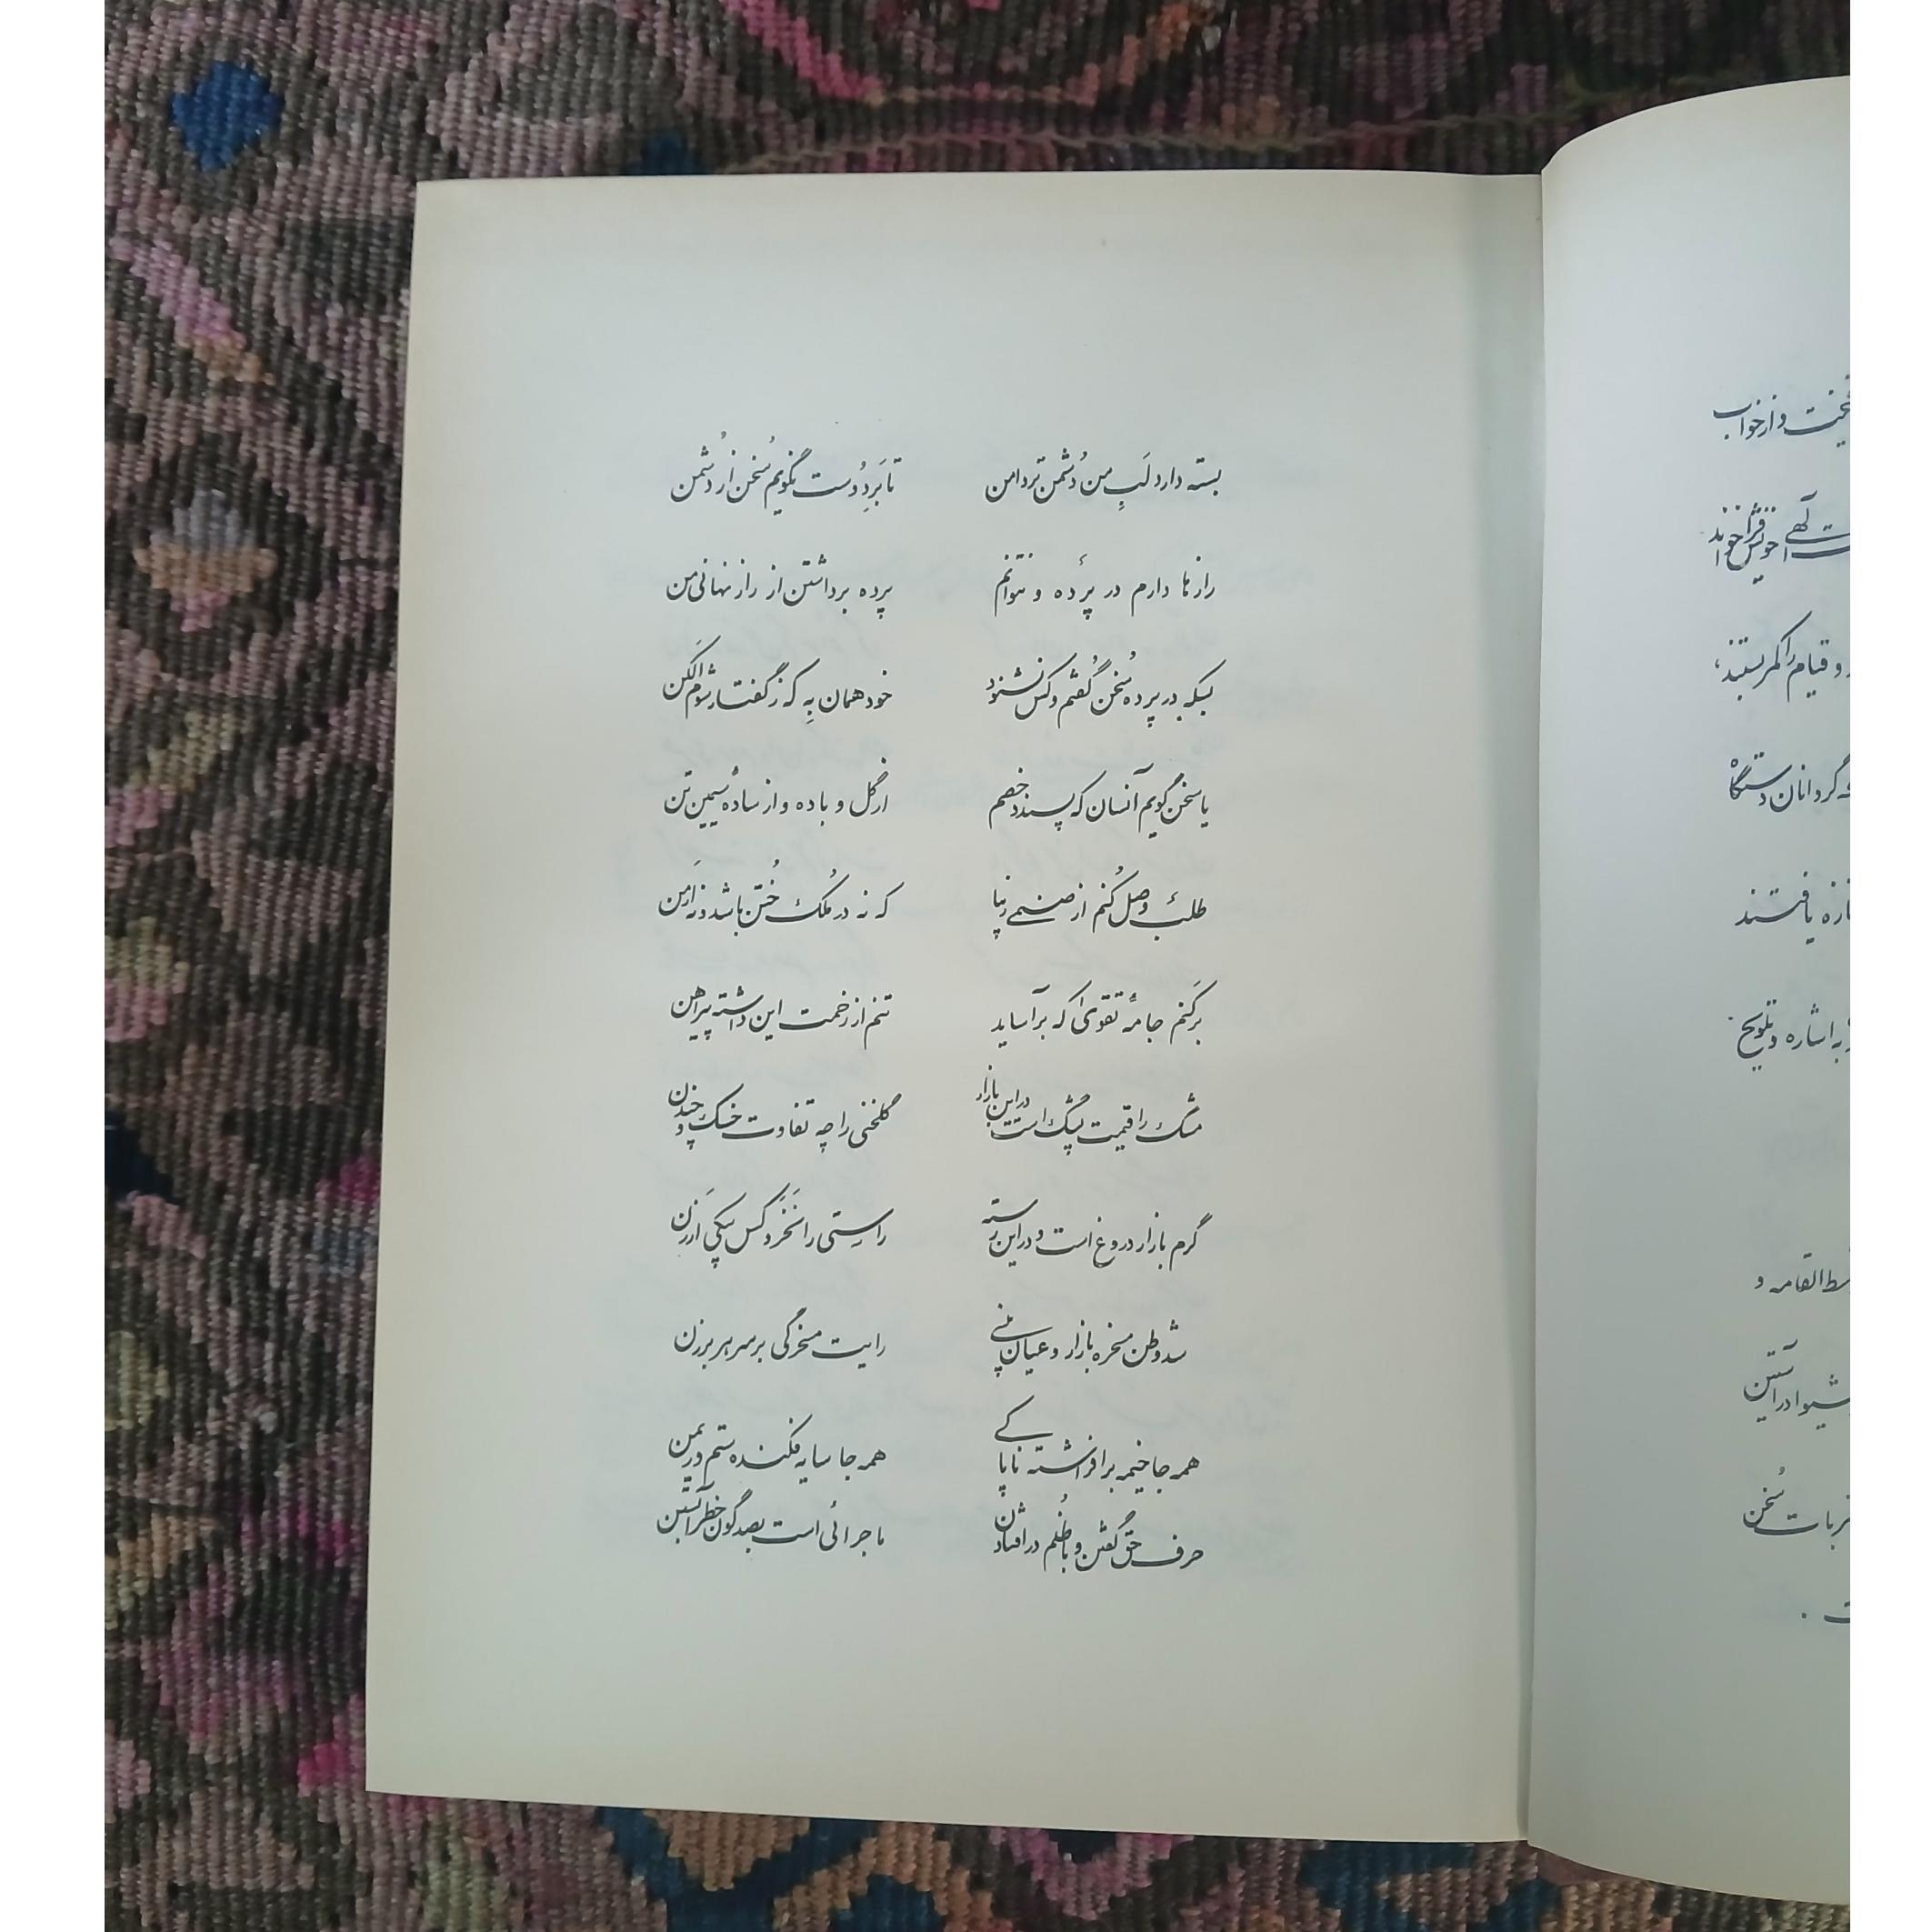 بسته دارد لَبِ من دُشمن تردامن تا بَرِ دُوست نگویم سُخن از دُشمن
رازها دارم در پرده و نتوانم پرده برداشتن از راز نهانی من
بسکه در پرده سُخن گُفتم و کس نشنود خود همان بِه که ز گفتار شوم اَلکن
یا سخن گویم آنسان که پسندد خصم از گُل و باده و از سادهٔ سیمین تن
طلب وصل کُنم از صنمی زیبا که نه در مُلک خُتن باشد و نه ارمن
برکَنم جامهٔ تقوی را که برآساید تنم از زحمت این داشته پیراهن
مشک را قیمت پشک است در این بازار گلخنی را چه تفاوت خسک و چندن
گرم بازار دروغ است و در این رسته راستی را نَخَرد کس بیکی اَرزن
شد وطن مسخره بازار و عیان بینی رایت مسخرگی بر سر هر برزن
همه جا خیمه برافراشته ناپاکی همه جا سایه فکنده ستم و ریمن
حرف حق گُفتن و با ظُلم درافتادن ماجرائی است بصد گون خطر آبستن
و از خواب
خویش فرا خواند
و قیام را کمر بستند،
گردانان دستگاه
یافتند
به اشاره و تلویح
القامه و
شیوا در آستین
سُخن